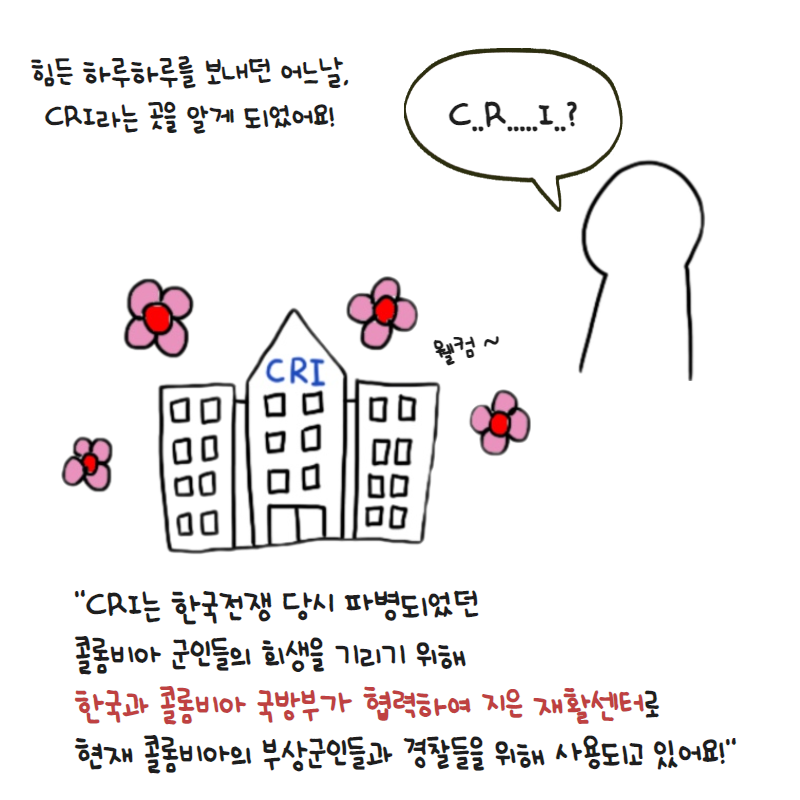 힘든 하루하루를 보내던 어느날,
CRI라는 곳을 알게 되었어요!
C..R.....I..?
웰컴 ~
CRI
"CRI는 한국전쟁 당시 파병되었던
콜롬비아 군인들의 희생을 기리기 위해
한국과 콜롬비아 국방부가 협력하여 지은 재활센터로
현재 콜롬비아의 부상군인들과 경찰들을 위해 사용되고 있어요!"